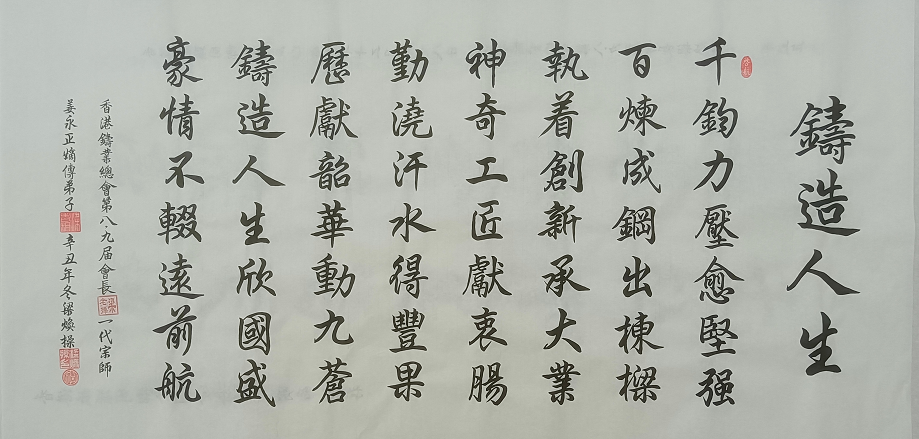 鑄造人生
千鈞力壓愈堅强
百煉成鋼出棟樑
執着創新承大業
神奇工匠獻衷腸
勤澆汗水得豐果
歷獻韶華動九蒼
鑄造人生欣國盛
豪情不輟遠前航
香港鑄業總會第八·九届會長 一代宗師
姜永正嫡傳弟子 辛丑年冬 煥操